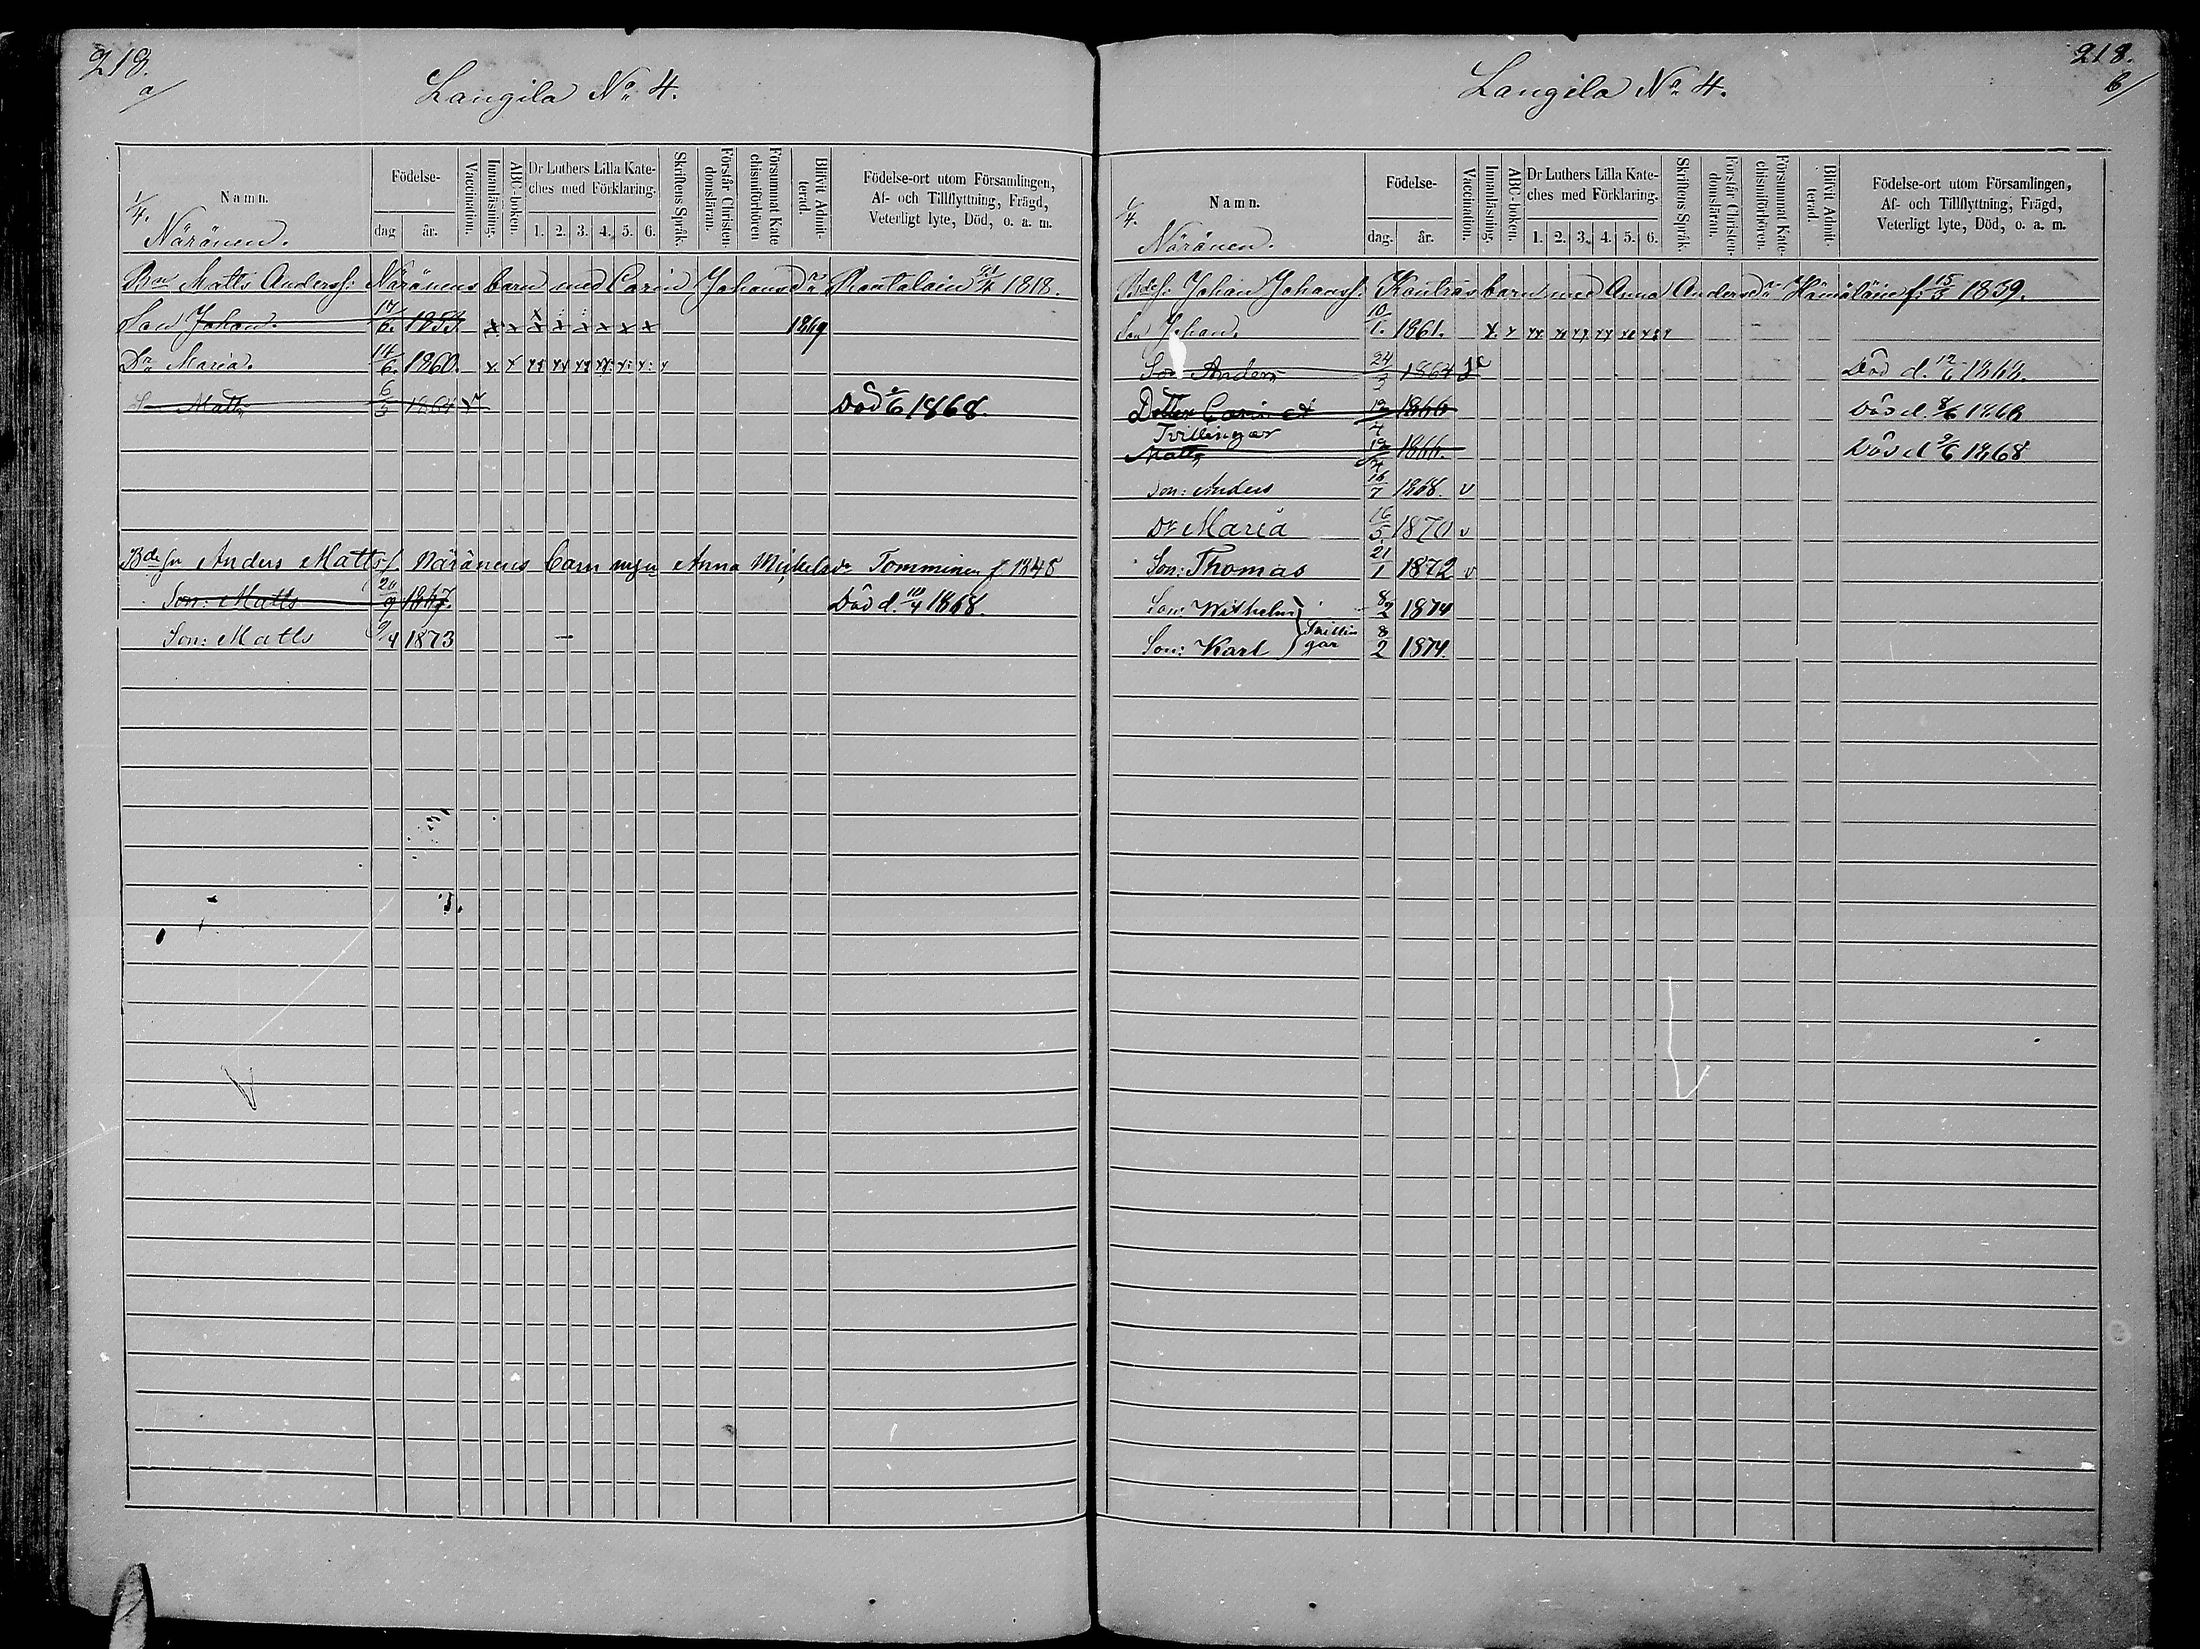 218.
a/
Langila No 4.
Namn.
Födelse-
dag
år.
Vaccination.
Innanläsning.
ABC-boken.
Dr Luthers Lilla Kate-
ches med Förklaring.
1. 2. 3. 4. 5. 6.
Skriftens Språk.
Förstår Christen-
domsläran.
Försummat Kate
chismiförhören
Blifvit Admit-
terad.
Födelse-ort utom Församlingen,
Af- och Tillflyttning, Frägd,
Veterligt lyte, Död, o. a. m.
1/4.
Näränen.
Bon Matts Anderss: Näränens barn med Carin Johansdr Rautalain 21/4 1818.
Son Johan. 17/6. 1854 x x x x x x x x 1869
Dr Maria. 14/6. 1860.
S Matts 6/5 1864 v Död 2/6 1868.
Bde sn Anders Matts f Näränens barn m hu Anna Mickelsdr Tomminen f 1848
Son: Matts 20/9 1867. Död d. 10/4 1868.
Son: Matts 9/4 1873
218.
b/
Langila No 4.
Namn.
Födelse-
dag.
år.
Vaccination.
Innanläsning.
ABC-boken.
Dr Luthers Lilla Kate-
ches med Förklaring.
1. 2. 3. 4. 5. 6.
Skriftens Språk.
Förstår Christen-
domsläran.
Försummat Kate-
chismiförhören.
Blifvit Admit-
terad.
Födelse-ort utom Församlingen,
Af- och Tillflyttning, Frägd,
Veterligt lyte, Död, o. a. m.
1/4.
Näränen.
Bdes: Johan Johanss: barn med Anna Andersdr Hämäläin f: 15/5 1839.
Son Johan. 10/1. 1861.
Son Anders 24/3 1864 Död d. 12/6 1868.
Dotter Carin et 19/4 1866 Död d. 8/6 1868
Tvillingar
Matts 19/4 1866. Död d 9/6 1868
Son: Anders 16/7 1868. v
Dr Maria 16/5 1870 v
Son: Thomas 21/1 1872 v
Son: Wilhelm 8/2 1874
Son: Karl Tvillin
gar 8/2 1874.